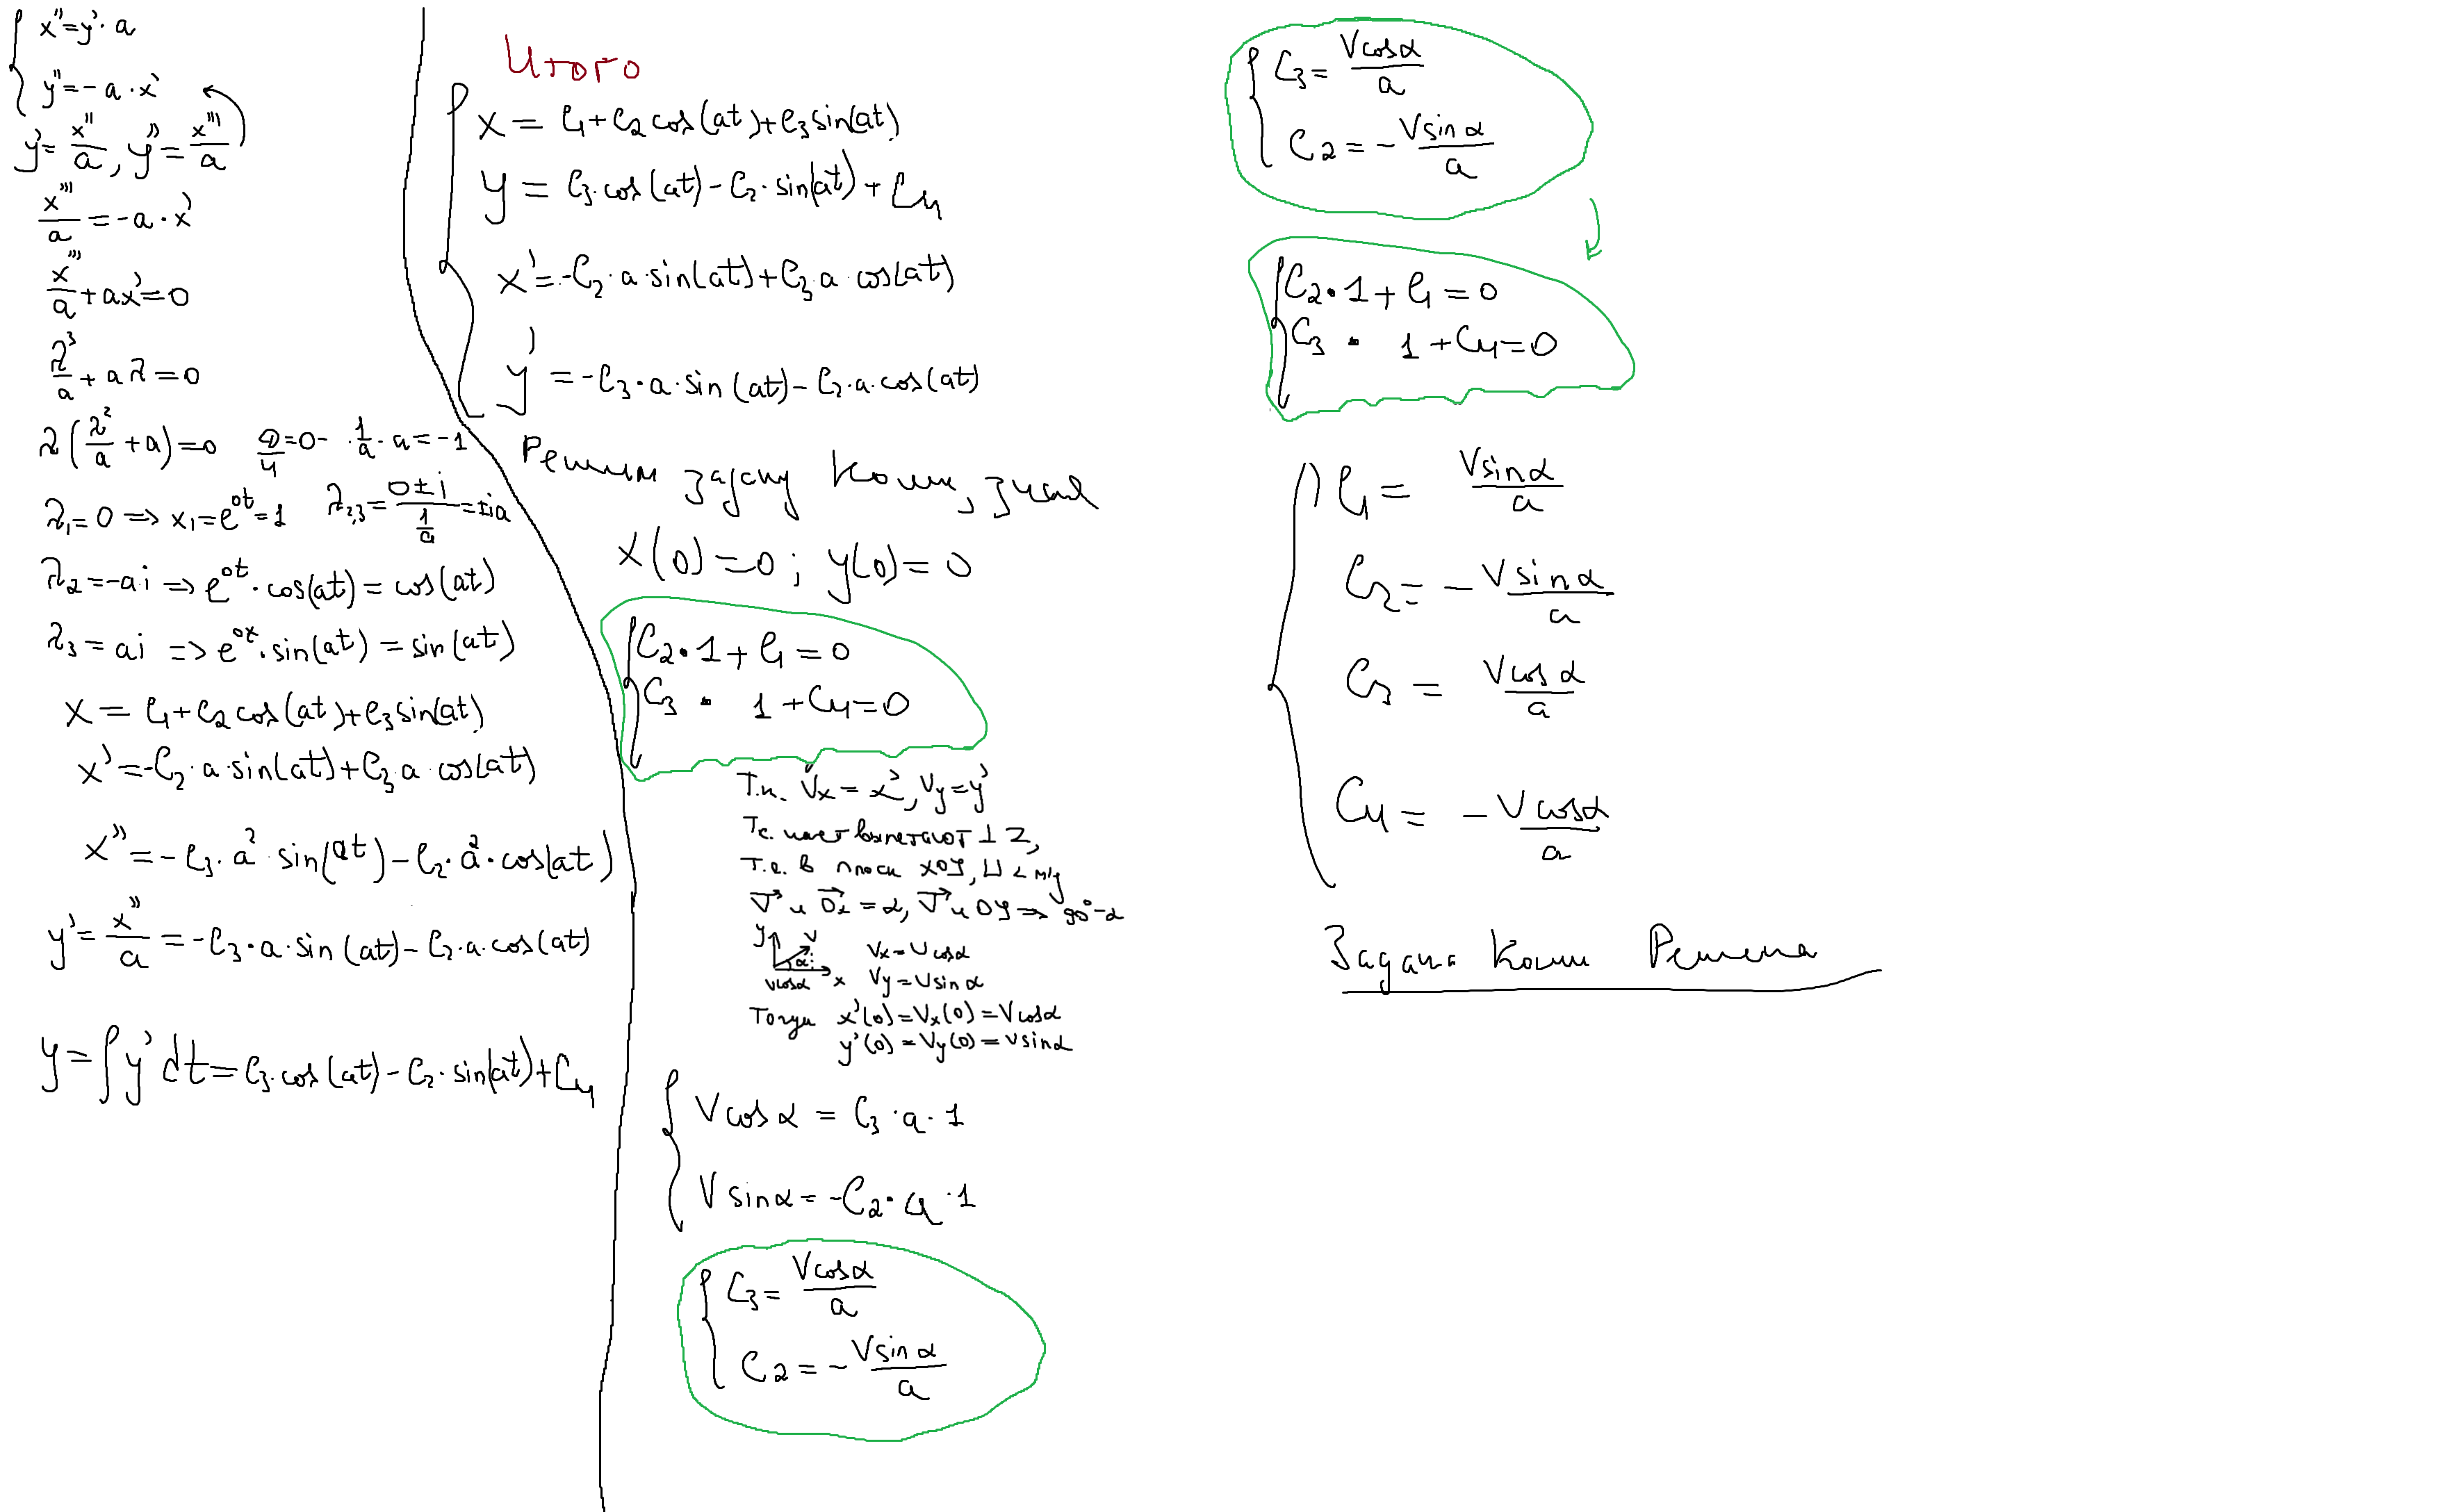 x''=y'·a
y''=-a·x'
y'=x''/a, y''=x'''/a
x'''/a=-a·x'
x'''/a+ax'=0
λ³/a+aλ=0
λ(λ²/a+a)=0 D/4=0-·1/a·a=-1
λ₁=0⇒x₁=e^{0t}=1 λ₂,₃=(0±i)/(1/a)=±ia
λ₂=-ai⇒e^{0t}·cos(at)=cos(at)
λ₃=ai=>e^{0t}·sin(at)=sin(at)
x=C₁+C₂cos(at)+C₃sin(at)
x'=-C₂·a·sin(at)+C₃·a·cos(at)
x''=-C₃·a²·sin(at)-C₂·a²·cos(at)
y'=x''/a=-C₃·a·sin(at)-C₂·a·cos(at)
y=∫y'dt=C₃·cos(at)-C₂·sin(at)+C₄
Итого
x=C₁+C₂cos(at)+C₃sin(at)
y=C₃·cos(at)-C₂·sin(at)+C₄
x'=-C₂·a·sin(at)+C₃·a·cos(at)
y'=-C₃·a·sin(at)-C₂·a·cos(at)
Решим задачу Коши, зная
x(0)=0; y(0)=0
C₂·1+C₁=0
C₃·1+C₄=0
Т.к. Vx=x', Vy=y'
⊥ Z,
Т.е. в плоск XOY,
V и Ox=α, V и OY⇒90°-α
y V
α
Vcosα x
Vx=Vcosα
Vy=Vsinα
Тогда x'(0)=Vx(0)=Vcosα
y'(0)=Vy(0)=Vsinα
Vcosα=C₃·a·1
Vsinα=-C₂·a·1
C₃=Vcosα/a
C₂=-Vsinα/a
C₃=Vcosα/a
C₂=-Vsinα/a
C₂·1+C₁=0
C₃·1+C₄=0
C₁=Vsinα/a
C₂=-Vsinα/a
C₃=Vcosα/a
C₄=-Vcosα/a
Задача Коши Решена